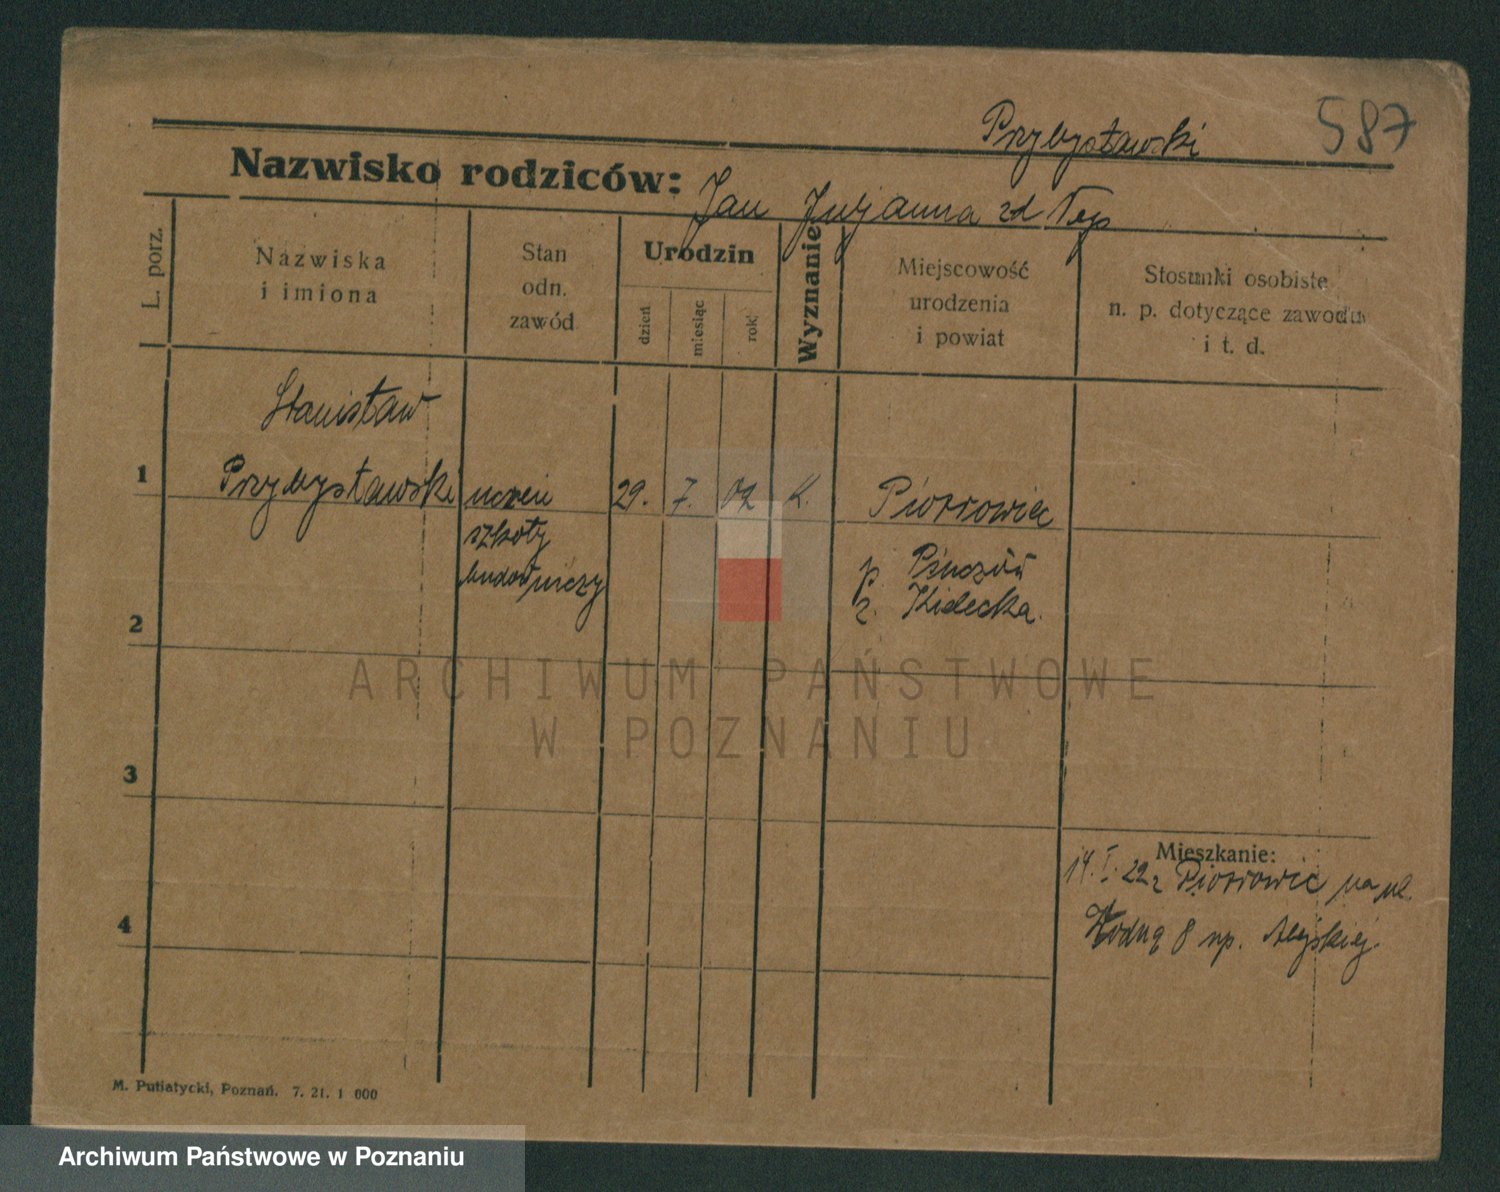 Przybysławski 587
Nazwisko rodziców: Jan Julianna zd
L. porz.
Nazwiska
i imiona
Stan
odn.
zawód
Urodzin
dzień
miesiąc
rok
Wyznanie
Miejscowość
urodzenia
i powiat
Stosunki osobiste
n. p. dotyczące zawodu
i t. d.
Stanisław
1 Przybysławski uczeń 29. 7. 02 K. Piotrowiec
szkoły
budowniczy
p. Pińczów
z. Kielecka.
2
3
Mieszkanie:
14. I. 22 z Piotrowic na ul.
4
Wodną 8 np.
M. Putiatycki, Poznań. 7. 21. 1 000
ARCHIWUM PAŃSTWOWE
W POZNANIU
Archiwum Państwowe w Poznaniu